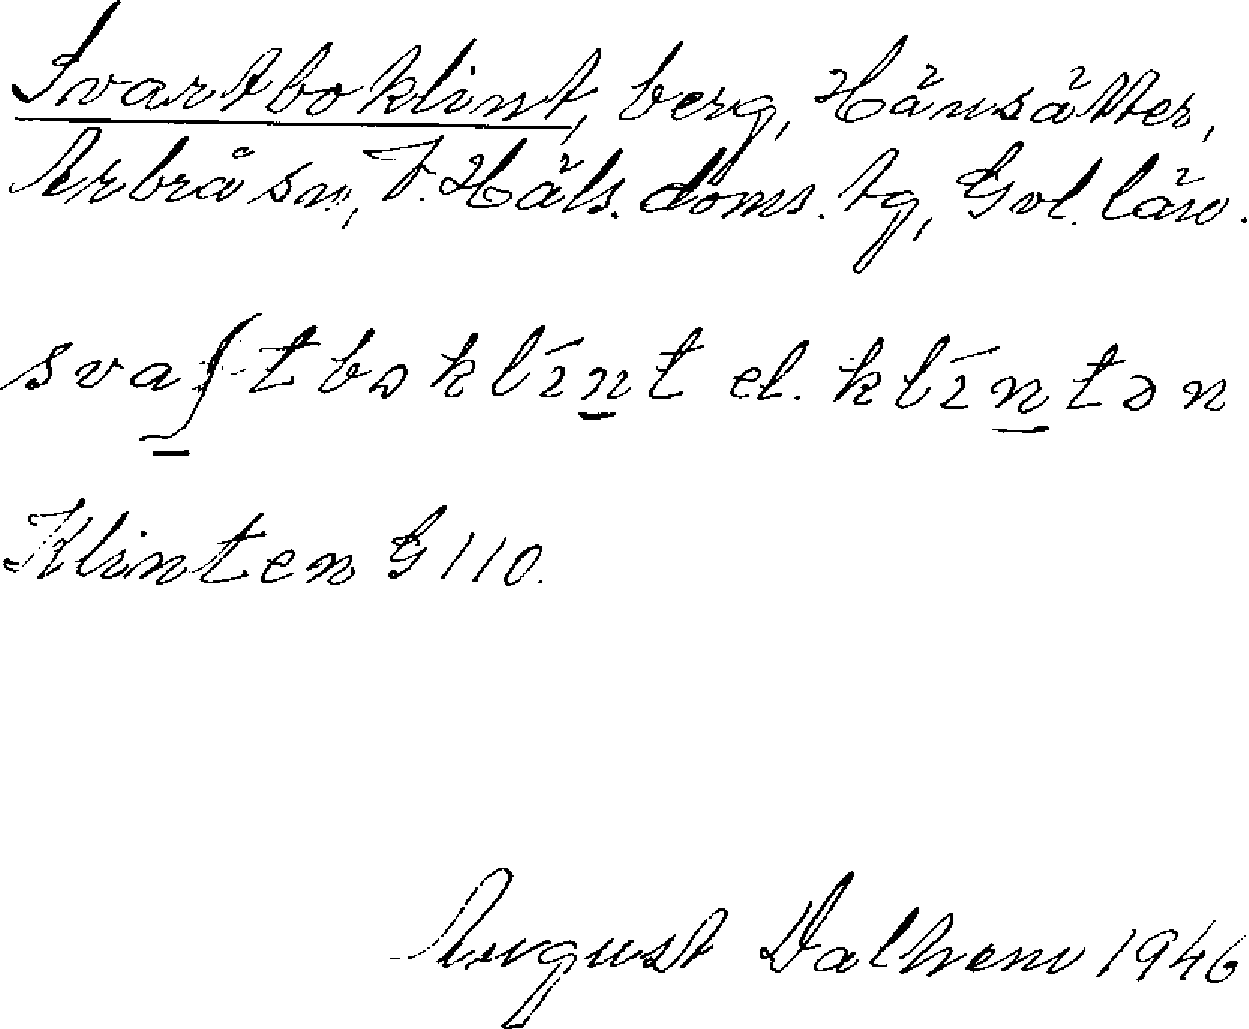 Svartboklint, berg, Hänsätter,
Arbrå sn, V. Häls. doms. tg, Gvl. län.
svaʃtbɔklint el. klintən
Klinten G 110.
August Dalhem 1946